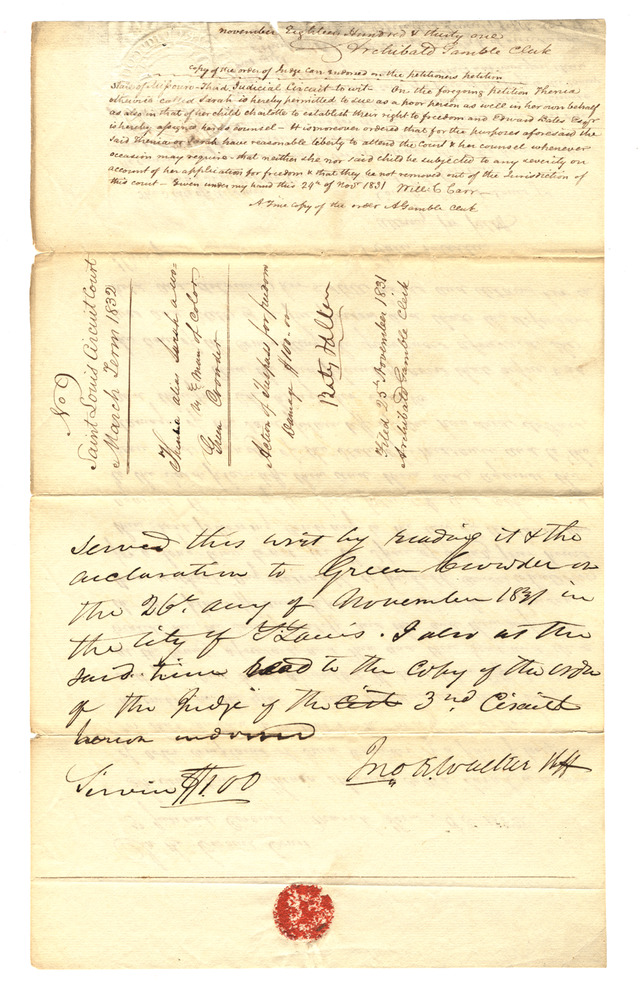 november Eighteen Hundred & thirty one
Archibald Gamble Clerk
Copy of the order of Judge Carr endorsed on the petitioners petition
State of Missouri Third Judicial Circuit to wit - On the forgoing petition Thenia
otherwise called Sarah is hereby permitted to sue as a poor person as well in her own behalf
as also in that of her child Charlotte to establish their right to freedom and Edward Bates Esqr
is hereby assigned her as counsel - It is moreover ordered that for the purposes aforesaid the
said Thenia or Sarah have reasonable liberty to attend the Court & her counsel whenever
occasion may require - that neither she nor said child be subjected to any severity on
account of her application for freedom & that they be not removed out of the Jurisdiction of
this court - Given under my hand this 24th of Novr 1831 Will: C Carr
A True copy of the order A Gamble Clerk
No 9
Saint Louis Circuit Court
March Term 1832
Thenia alias Sarah a wo-
vs } man of Color
Green Crowder
Action of Trespass for freedom
Damage $100.00
Filed 25th November 1831
Archibald Gamble Clerk
served this writ by reading it & the
declaration to Green Crowder on
the 26t. day of November 1831 in
the City of St Louis. I also at the
said time read to the Copy of the order
of the Judge of the cict 3rd Circuit
hereon endorsed
Service $1.00
Jno K. Walker Shff